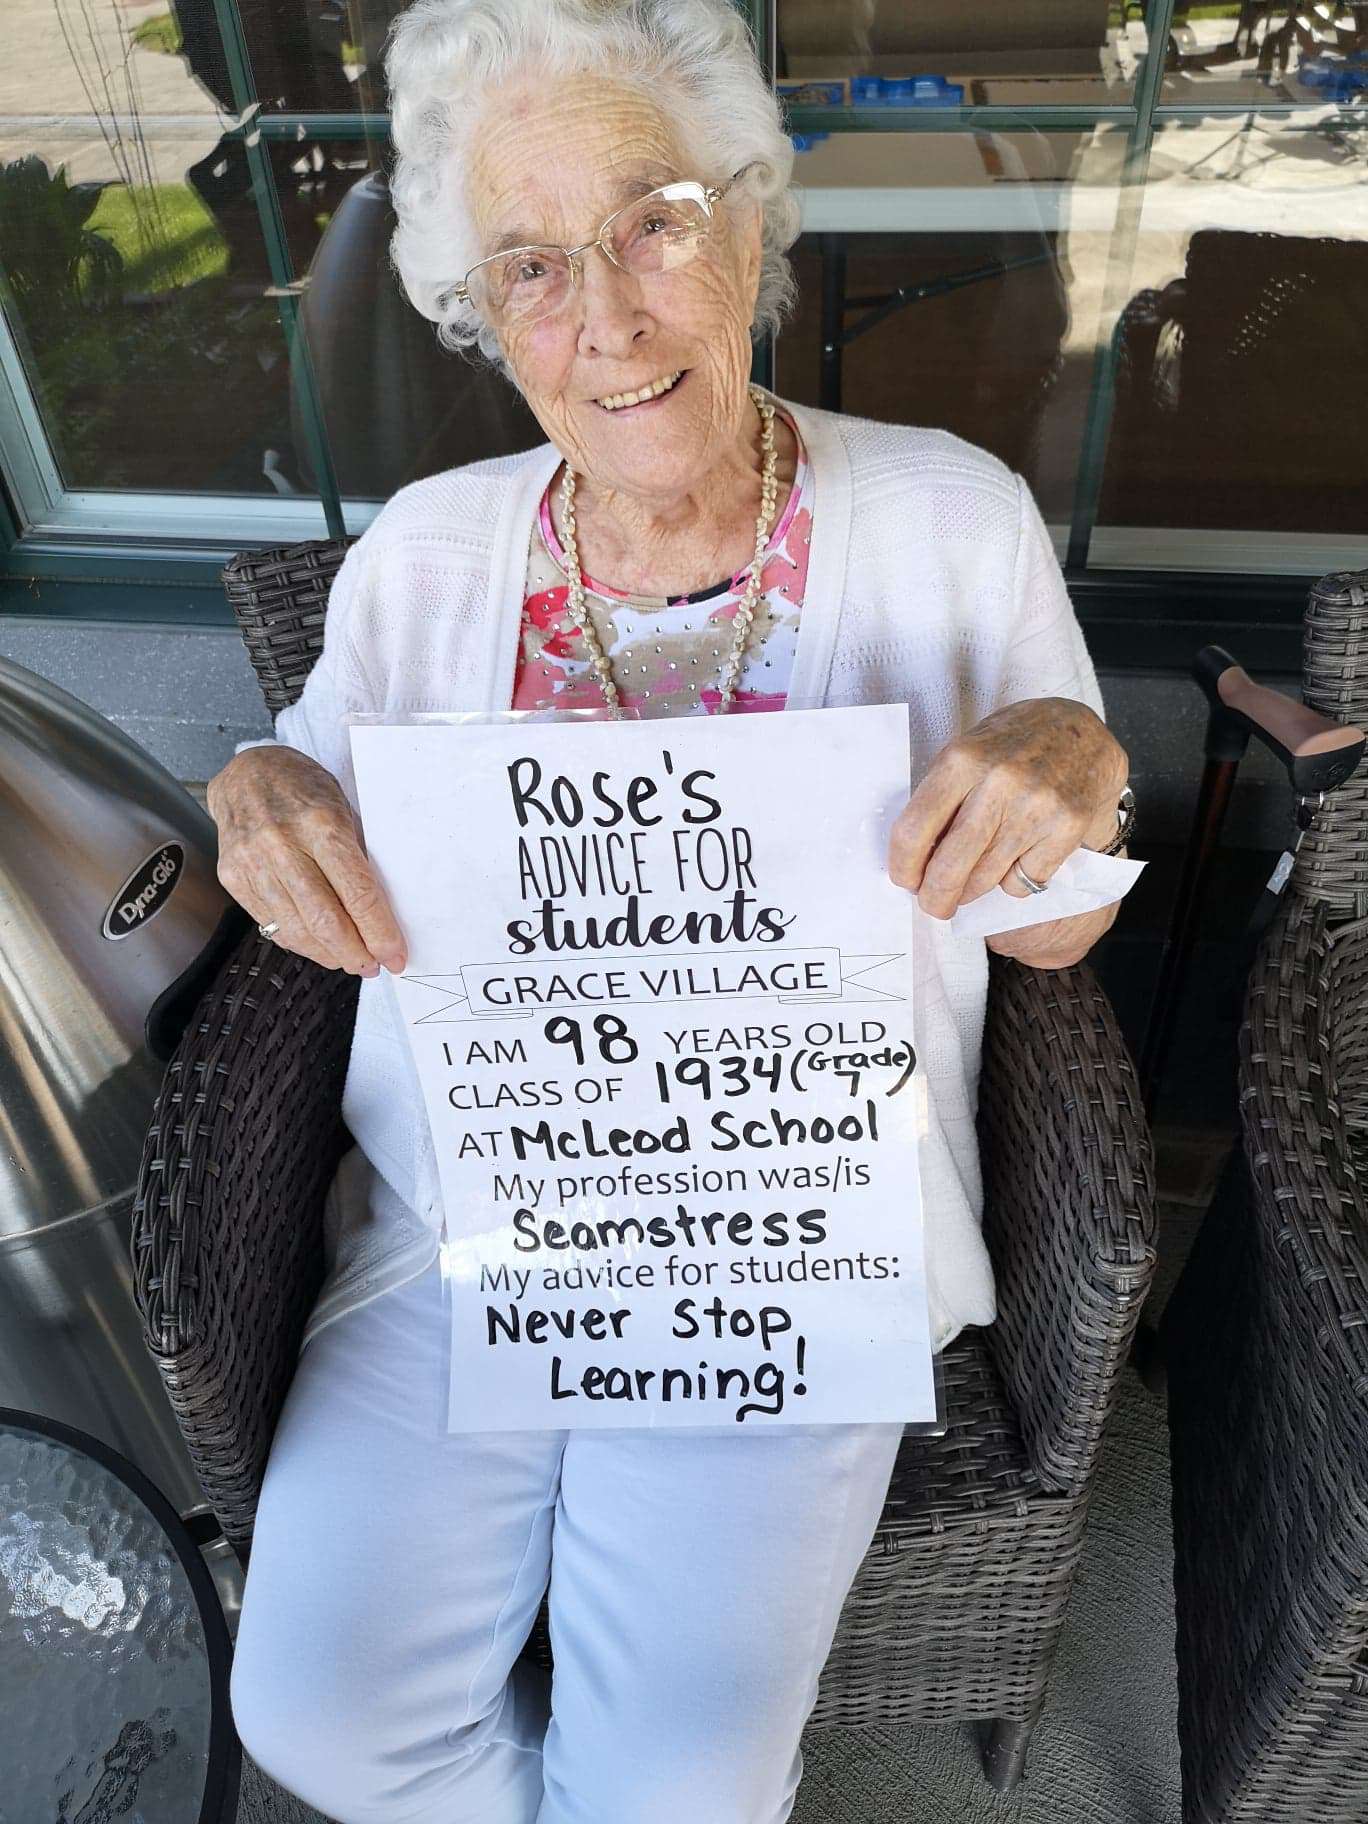 Dyna-Glo
Rose's
ADVICE FOR
students
GRACE VILLAGE
I AM 98 YEARS OLD
CLASS OF 1934 (Grade 7)
AT McLeod School
My profession was/is
Seamstress
My advice for students:
Never Stop
Learning!